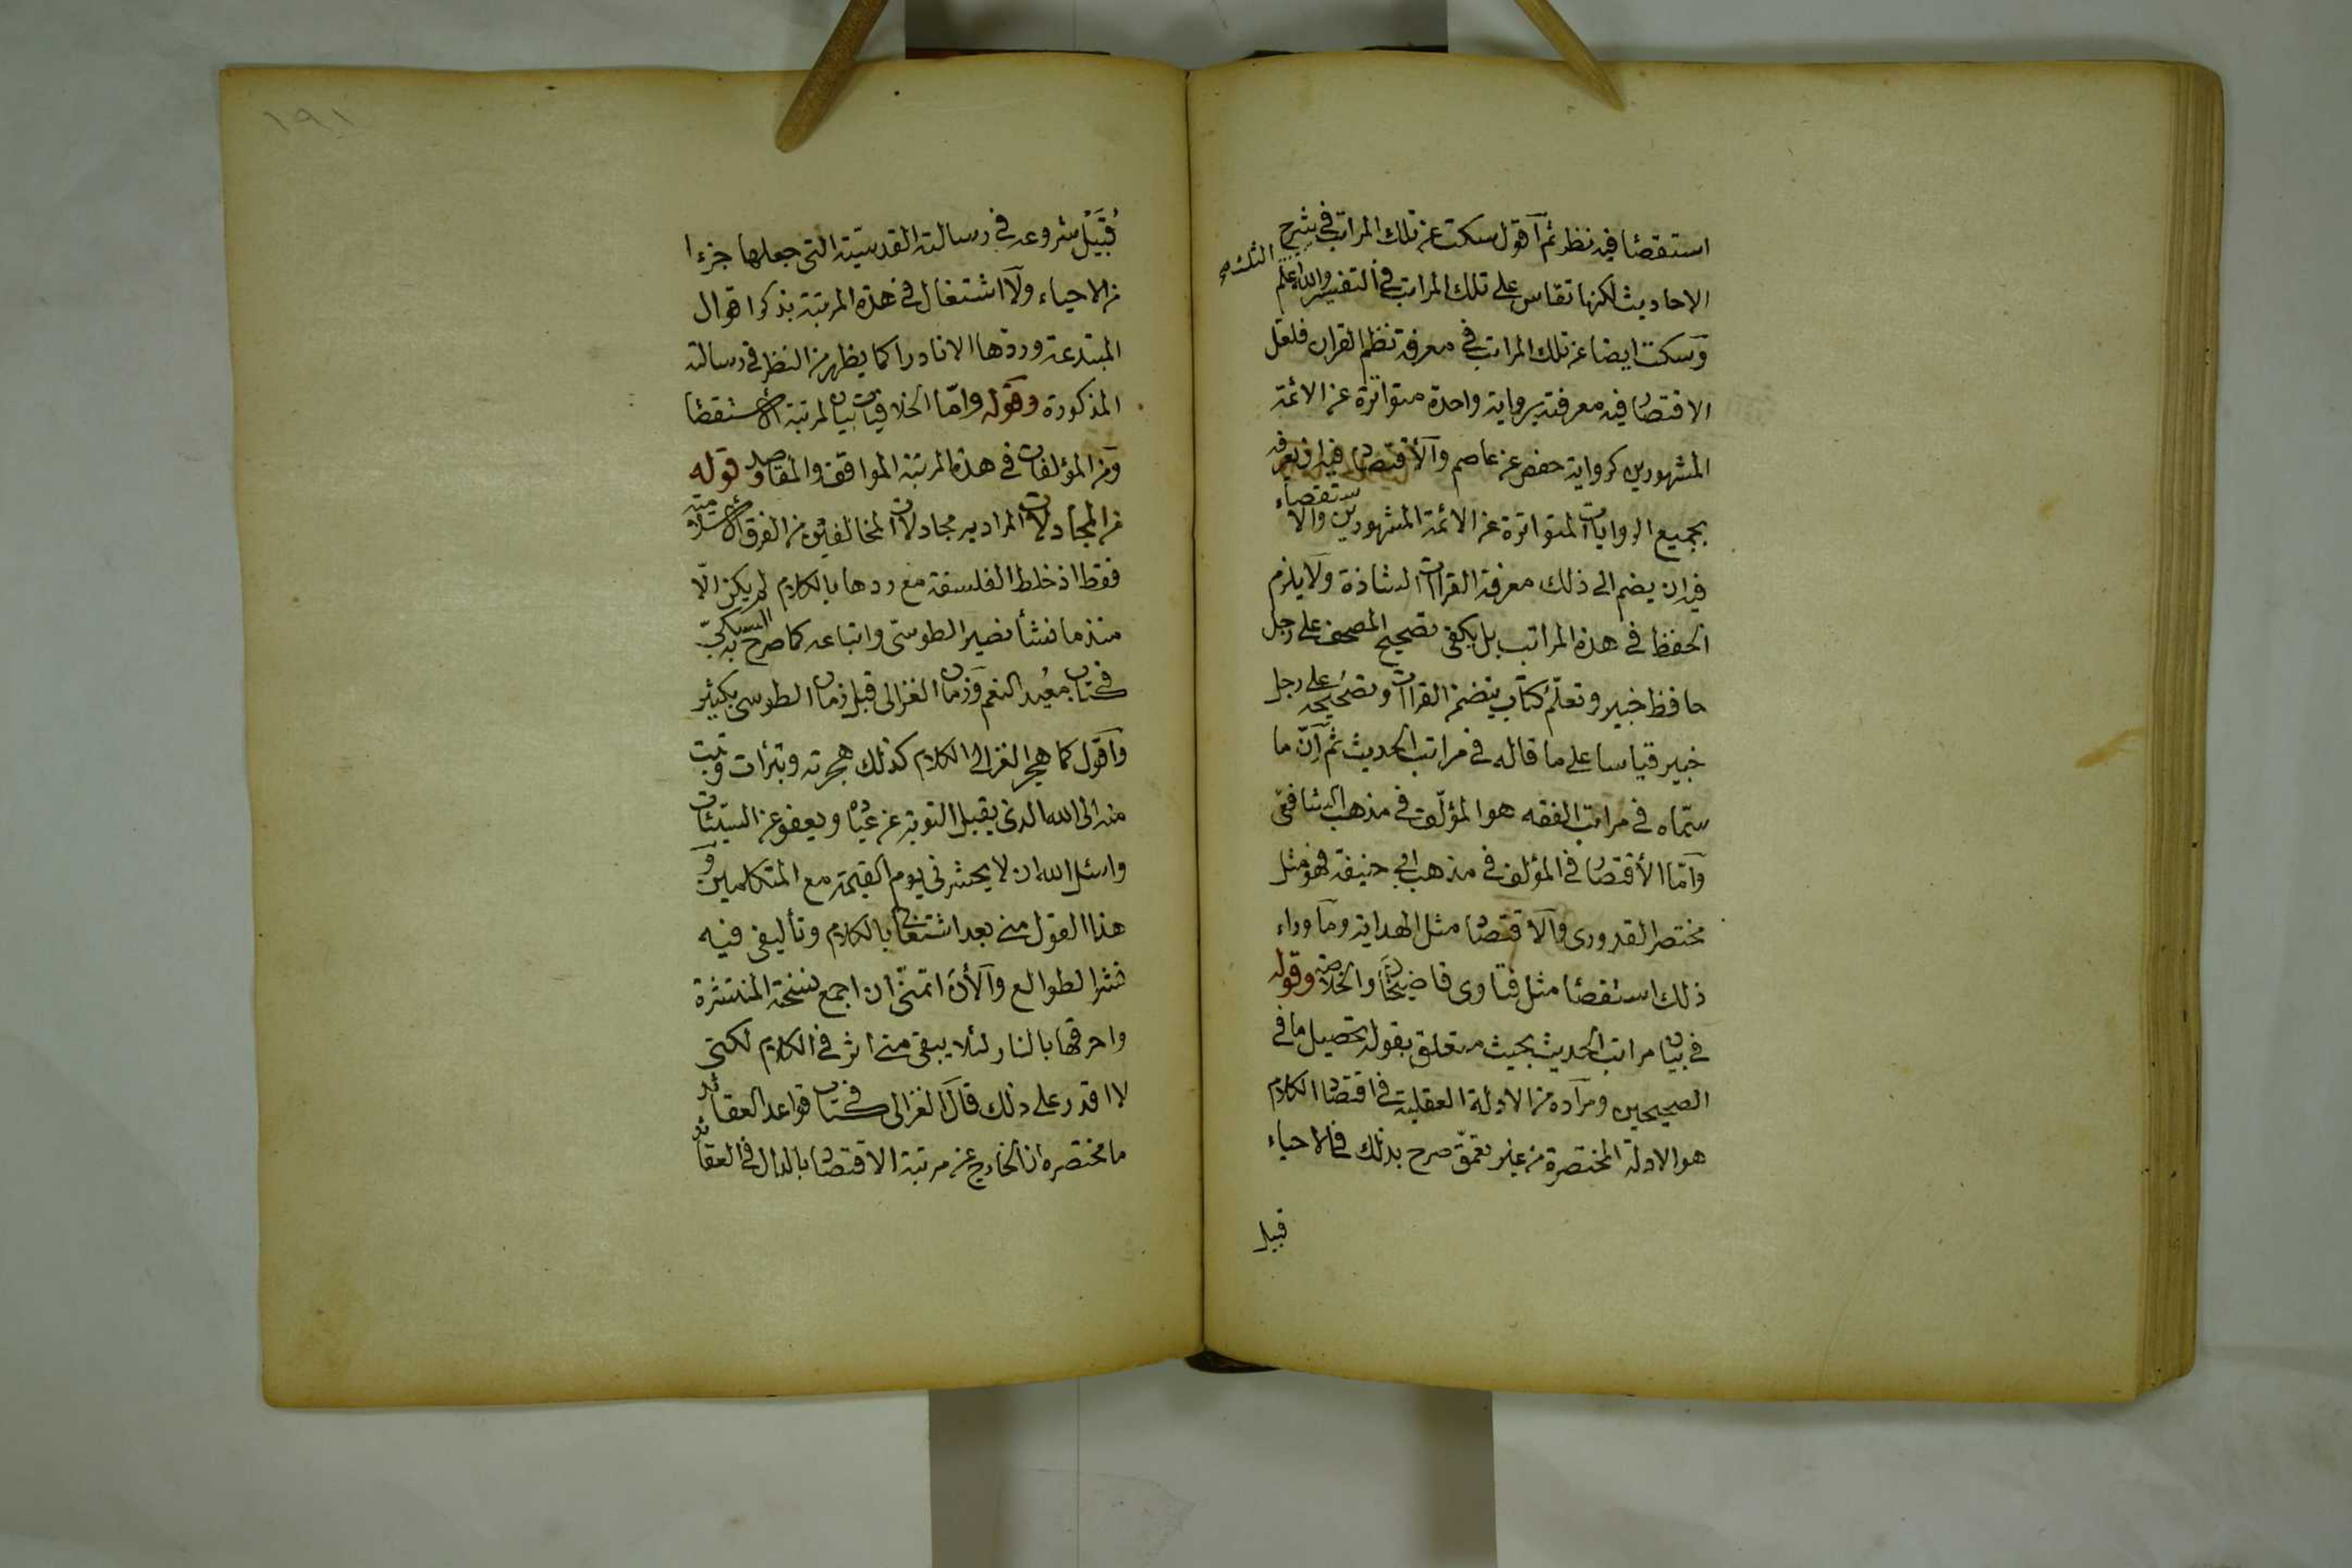 استقصاء فيه نظر ثم اقول سكت عن تلك المراتب في شرح
الاحاديث لكنها تقاس على تلك المراتب في التفسير والله اعلم
وسكت ايضا عن تلك المراتب في معرفة نظم القران فلعل
الاقتصار فيه معرفته برواية واحدة متواترة عن الائمة
المشهورين كرواية حفص عن عاصم والاقتصاد فيه ان يعرفه
بجميع الروايات المتواترة عن الائمة المشهورين والاستقصاء
فيه ان يضم الى ذلك معرفة القراآت الشاذة ولا يلزم
الحفظ في هذه المراتب بل يكفى تصحيح المصحف على رجل
حافظ خبير وتعلم كتاب يتضمن القراآت وتصحيحه على رجل
خبير قياسا على ما قاله في مراتب الحديث ثم ان ما
سماه في مراتب الفقه هو المؤلف في مذهب الشافعى
واما الاقتصار في المؤلف في مذهب ابي حنيفة فهو مثل
مختصر القدورى والاقتصاد مثل الهداية وما وراء
ذلك استقصاء مثل فتاوى قاضيخان والخلاصة وقوله
في بيان مراتب الحديث بحيث متعلق بقوله تحصيل ما في
الصحيحين ومراده من الادلة العقلية في اقتصاد الكلام
هو الادلة المختصرة من غير تعمق صرح بذلك في الاحياء
قبيل
١٩١
قبيل شروعه في رسالته القدسية التى جعلها جزءا
من الاحياء ولا اشتغال في هذه المرتبة بذكر اقوال
المبتدعة وردها الا نادرا كما يظهر من النظر في رسالته
المذكورة وقوله واما الخلافيات بيان لمرتبة الاستقصاء
ومن المؤلفات في هذه المرتبة المواقف والمقاصد وقوله
من المجادلات المراد به مجادلات المخالفين من الفرق الاسلامية
فقط اذ خلط الفلسفة مع ردها بالكلام لم يكن الا
منذ ما نشأ نصير الطوسى واتباعه كما صرح به السبكى
في كتاب معيد النعم وزمان الغزالى قبل زمان الطوسى بكثير
واقول كما هجر الغزالى الكلام كذلك هجرته وتبرأت وتبت
منه الى الله الذى يقبل التوبة عن عباده ويعفو عن السيئات
واسئل الله ان لا يحشرنى يوم القيمة مع المتكلمين و
هذا القول منى بعد اشتغالى بالكلام وتأليفى فيه
نشر الطوالع والأن اتمنى ان اجمع نسخه المنتشرة
واحرقها بالنار لئلا يبقى منى اثر في الكلام لكنى
لا اقدر على ذلك قال الغزالى في كتاب قواعد العقائد
ما مختصره ان الخارج عن مرتبة الاقتصاد بالدال في العقائد